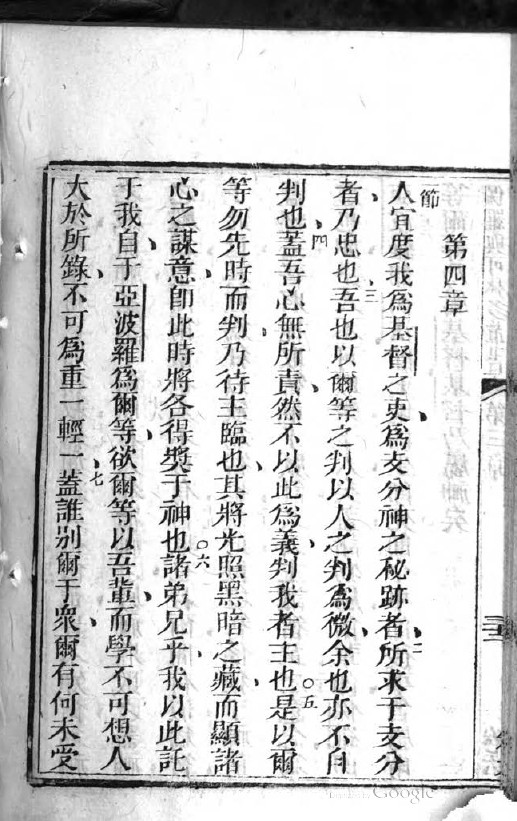 第四章
節
人宜度我為基督之吏為支分神之秘跡者二所求于支分
者乃忠也三吾也以爾等之判以人之判為微余也亦不自
判也四蓋吾心無所責然不以此為義判我者主也五是以爾
等勿先時而判乃待主臨也其將光照黑暗之藏而顯諸
心之謀意即此時將各得獎于神也六諸弟兄乎我以此託
于我自于亞波羅為爾等欲爾等以吾輩而學不可想人
大於所錄不可為重一輕一七蓋誰別爾于眾爾有何未受
Google